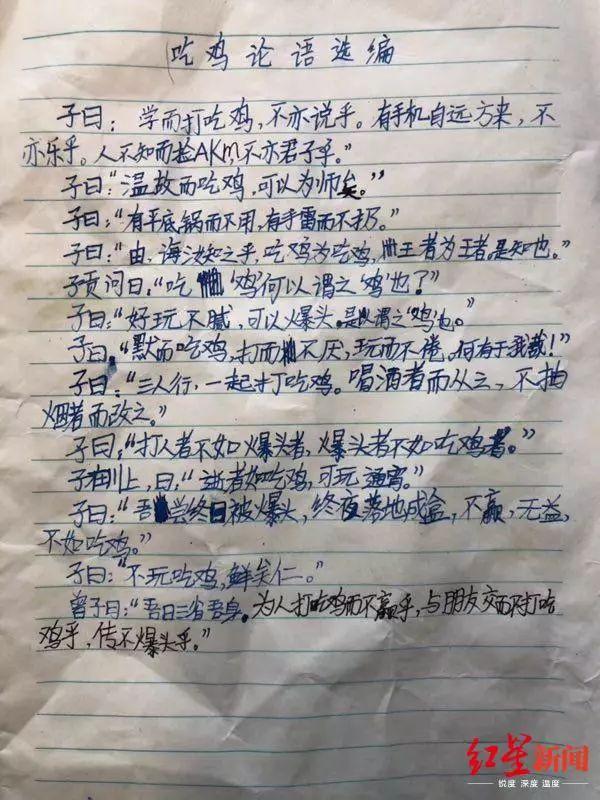 吃鸡论语选编
子曰：学而打吃鸡，不亦说乎。有手机自远方来，不
亦乐乎。人不知而捡AKM,不亦君子乎。”
子曰：“温故而吃鸡，可以为师矣。”
子曰：“有平底锅而不用，有手雷而不扔。”
子曰：“由，诲汝知之乎，吃鸡为吃鸡，王者为王者，是知也。”
子贡问曰：“吃‘鸡’何以谓之‘鸡’也？”
子曰：“好玩不腻，可以爆头。是以谓之‘鸡’也。”
子曰，“默而吃鸡，打而不厌，玩而不倦，何有于我哉！”
子曰：“三人行，一起打吃鸡。喝酒者而从之，不抽
烟者而改之。”
子曰：“打人者不如爆头者，爆头者不如吃鸡者。”
子在川上，曰：“逝者如吃鸡，可玩通宵。”
子曰：“吾尝终日被爆头，终夜落地成盒，不赢，无益，
不如吃鸡。”
子曰：“不玩吃鸡，鲜矣仁。”
曾子曰：“吾日三省吾身。为人打吃鸡而不赢乎，与朋友交而不打吃
鸡乎，传不爆头乎。”
红星新闻
锐度 深度 温度